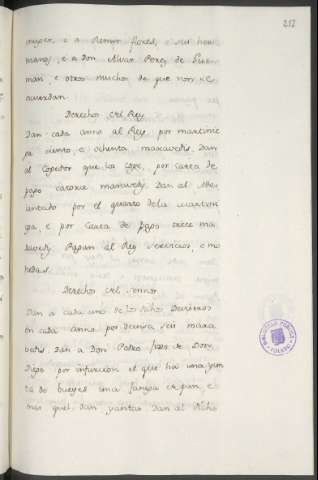 217
mugier, e a Remon flores, e sus her
manos, e a Don Alvar Perez de Guz
man, e otros muchos de que non se
acuerdan.
Derechos del Rey
Dan cada anno al Rey por martinie
ga ciento, e ochenta, maravedis, Dan
al que la coge, por carta de
pago catorce maravedis, Dan al Ade
lantado por el quarto dela martini
ga, e por Carta de pago trece ma
ravedis Pagan al Rey Servicios, e mo
nedas.
Derechos del Sennor.
Dan a cada uno de los dichos Deviseros
en cada anno por devisa seis mara
vedis, Dan a Don Pedro fijo de Don
Diego por infurcion el que há una yun
ta de bueyes una fanega de pan, e
mas quel dan yantar, Dan al dicho
BIBLIOTECA PUBLICA
TOLEDO